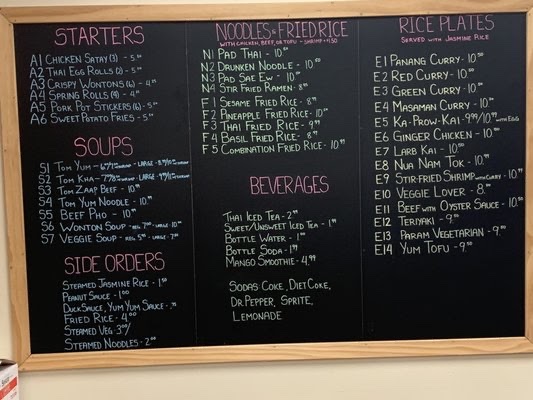 STARTERS
A1 CHICKEN SATAY (3) - 5.
A2 THAI EGG ROLLS (2) - 5.
A3 CRISPY WONTONS (6) - 4.
A4 SPRING ROLLS (4) - 4.
A5 PORK POT STICKERS (6) - 5.
A6 SWEET POTATO FRIES - 5.
SOUPS
S1 TOM YUM - LARGE -
S2 TOM KHA - LARGE -
S3 TOM ZAAP BEEF - 10.
S4 TOM YUM NOODLE - 10.
S5 BEEF PHO - 10.
S6 WONTON SOUP - REG. 7. - LARGE 10.
S7 VEGGIE SOUP - REG. 5. - LARGE 7.
SIDE ORDERS
STEAMED JASMINE RICE - 1.50
PEANUT SAUCE - 1.00
DUCK SAUCE, YUM YUM SAUCE -
FRIED RICE - 4.00
STEAMED VEG - 3.00
STEAMED NOODLES - 2.00
NOODLES & FRIED RICE
WITH CHICKEN, BEEF, OR TOFU - SHRIMP +1.50
N1 PAD THAI - 10.50
N2 DRUNKEN NOODLE - 10.50
N3 PAD SAE EW - 10.
N4 STIR FRIED RAMEN - 8.
F1 SESAME FRIED RICE - 8.
F2 PINEAPPLE FRIED RICE - 10.
F3 THAI FRIED RICE - 9.99
F4 BASIL FRIED RICE - 8.
F5 COMBINATION FRIED RICE - 10.
BEVERAGES
THAI ICED TEA - 2.
SWEET/UNSWEET ICED TEA - 1.
BOTTLE WATER - 1.
BOTTLE SODA - 1.
MANGO SMOOTHIE - 4.99
SODAS COKE, DIET COKE,
DR. PEPPER, SPRITE,
LEMONADE
RICE PLATES
SERVED WITH JASMINE RICE
E1 PANANG CURRY - 10.50
E2 RED CURRY - 10.50
E3 GREEN CURRY - 10.50
E4 MASAMAN CURRY - 10.
E5 KA-PROW-KAI - 9.99/10.99 WITH EGG
E6 GINGER CHICKEN - 10.
E7 LARB KAI - 10.
E8 NUA NAM TOK - 10.
E9 STIR-FRIED SHRIMP WITH CURRY - 10.
E10 VEGGIE LOVER - 8.
E11 BEEF WITH OYSTER SAUCE - 10.50
E12 TERIYAKI - 9.
E13 PARAM VEGETARIAN - 9.
E14 YUM TOFU - 9.